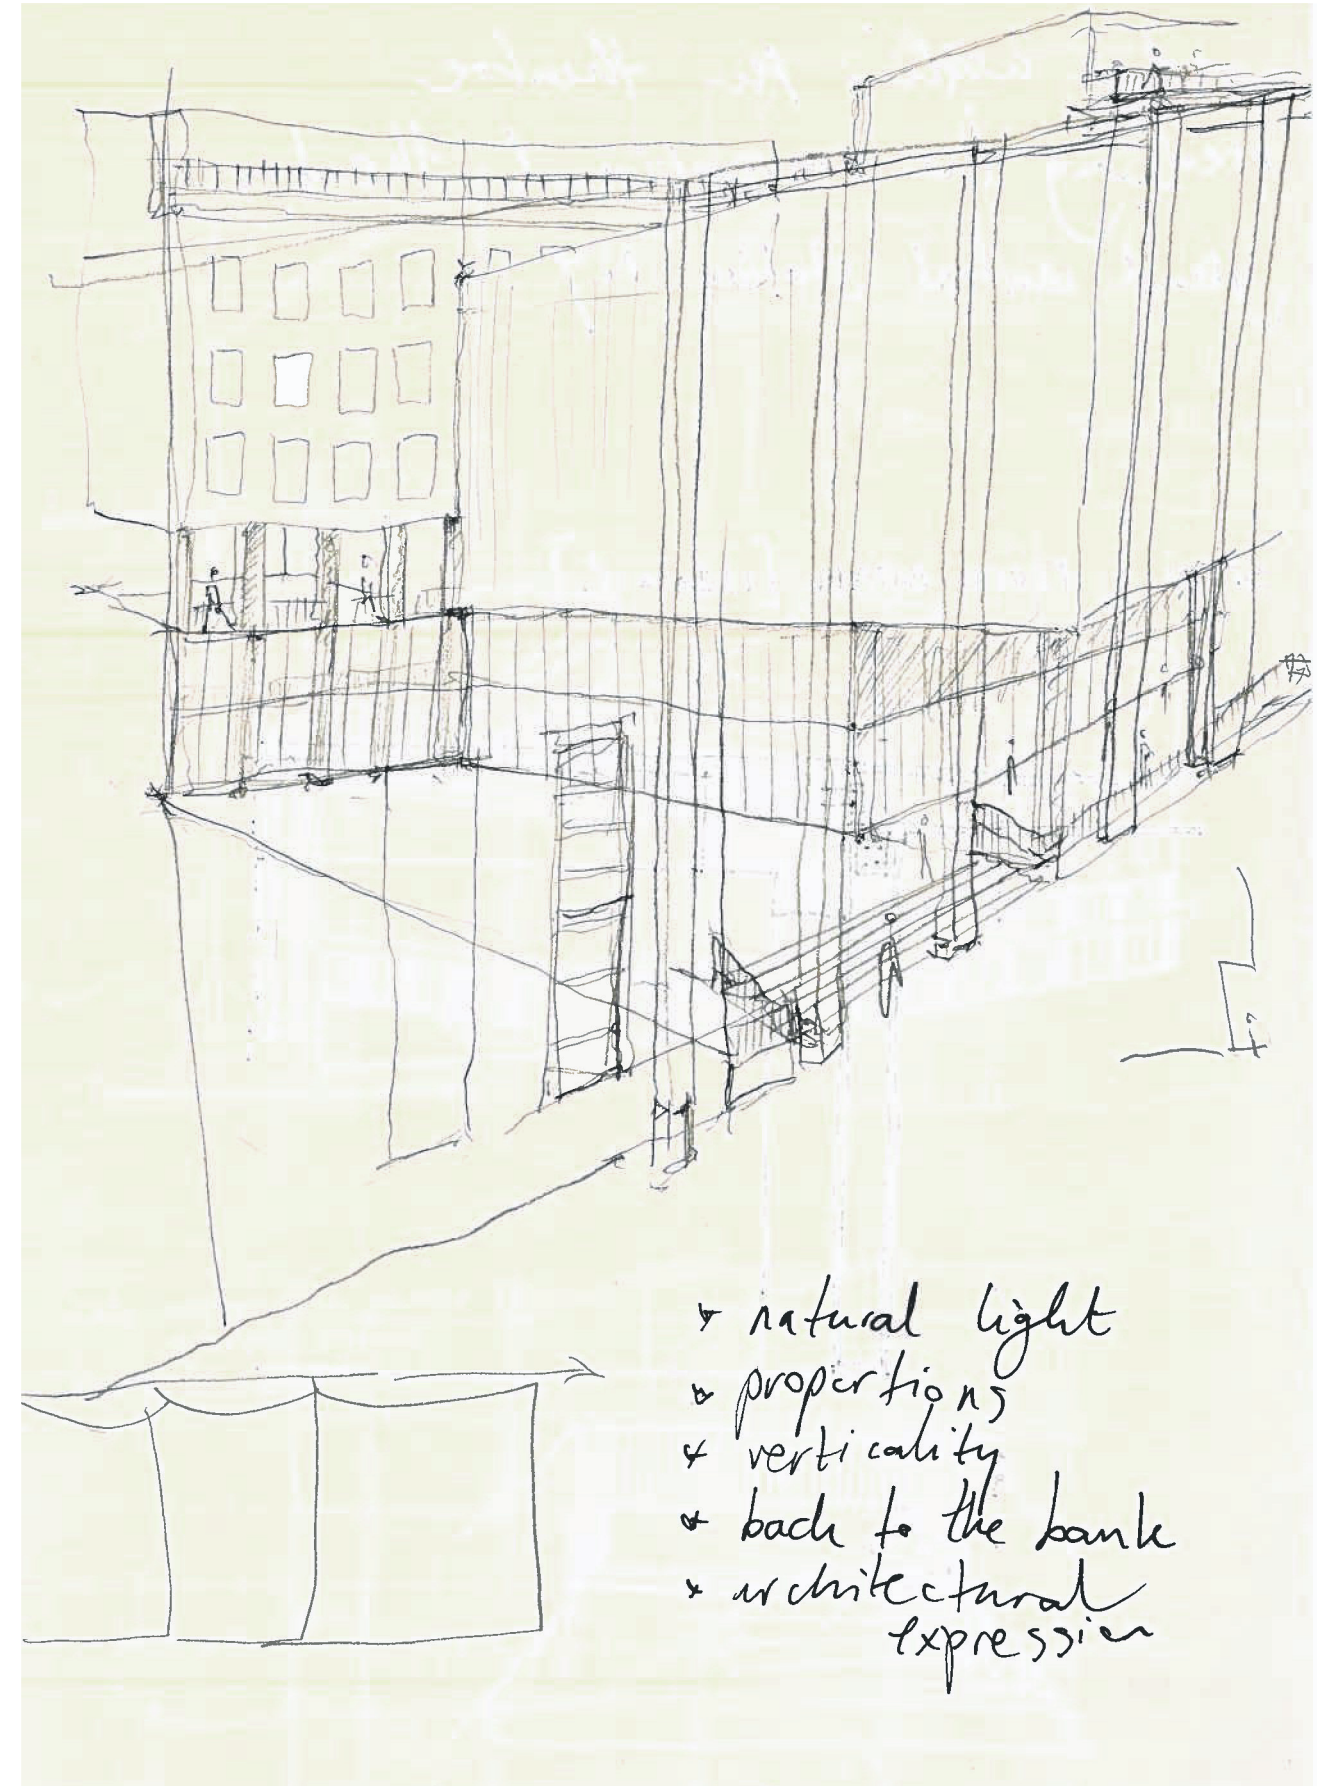 natural light
proportions
verticality
back to the bank
architectural
expression